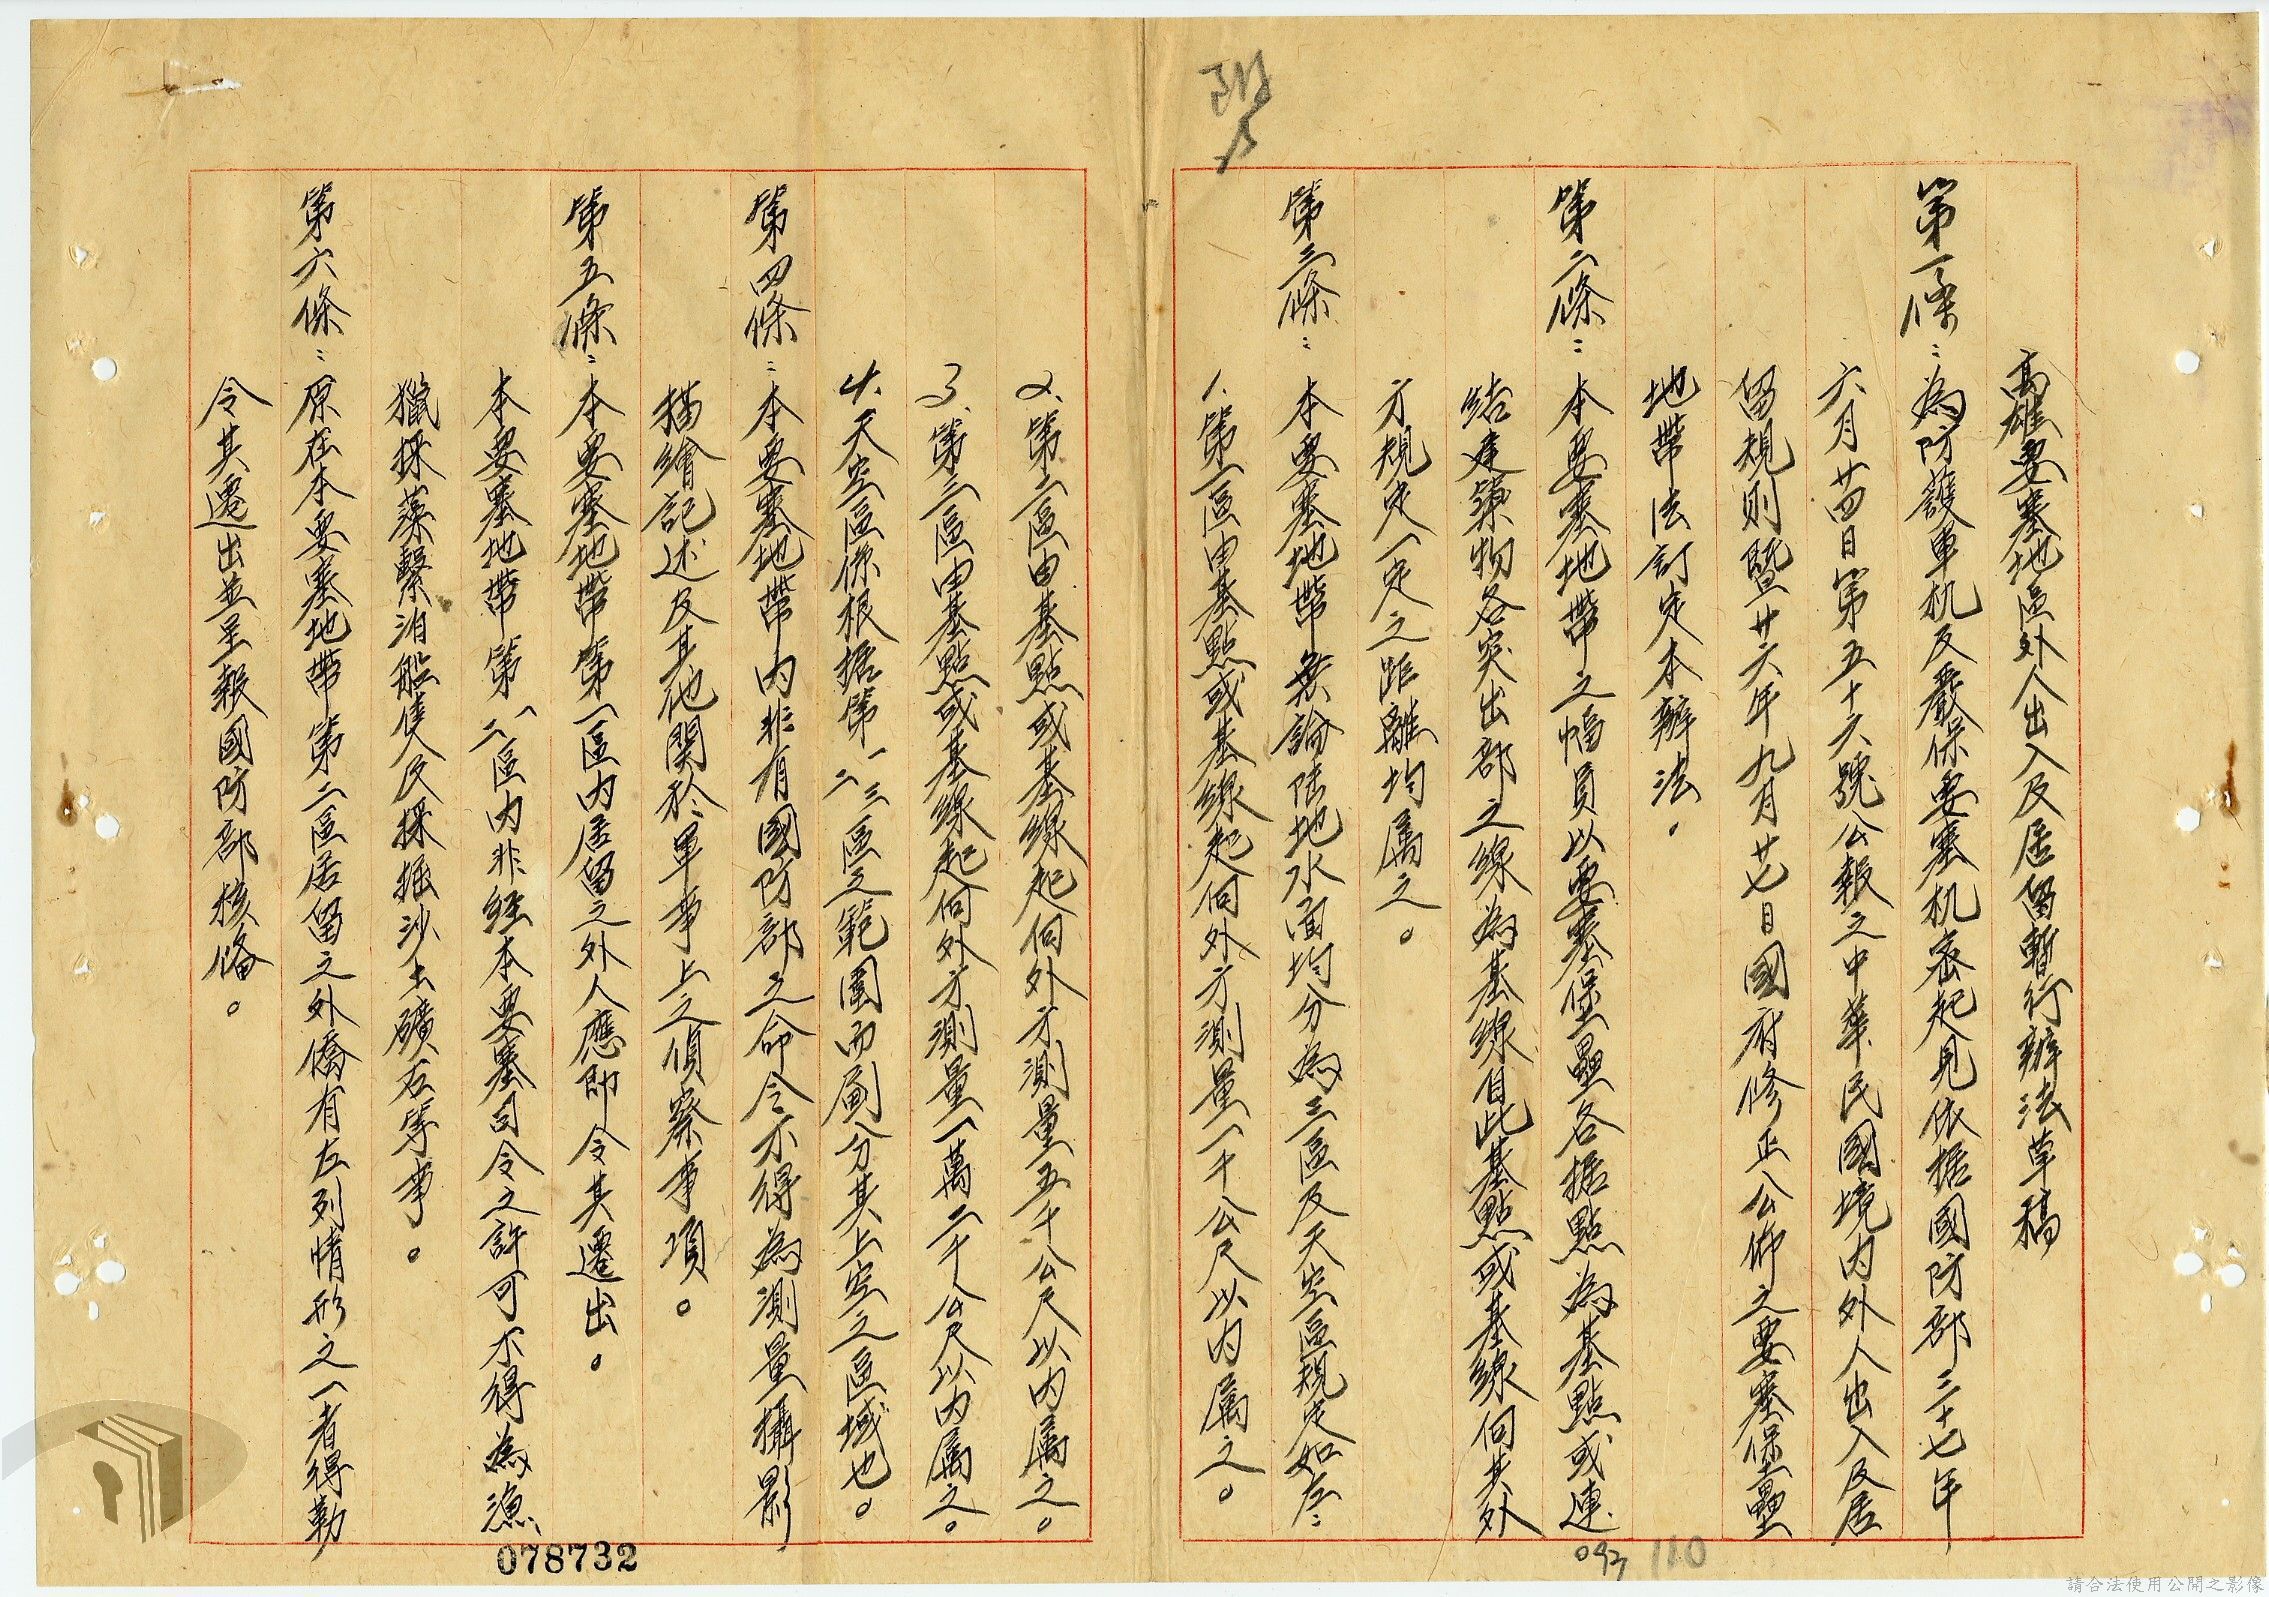 高雄要塞地區外人出入及居留暫行辦法草稿
第一條：為防護軍机及嚴保要塞机密起見依據國防部三十七年
六月廿四日第五十六號公報之中華民國境內外人出入及居
留規則暨廿六年九月廿七日國府修正公佈之要塞保壘
地帶法訂定本辦法。
第二條：本要塞地帶之幅員以要塞保壘各据點為基點或連
結建築物各突出部之線為基線自此基點或基線向其外
方規定一定之距離均属之。
第三條：本要塞地帶無論陸地水面均分為三區及天空區規定如左：
1.第一區由基點或基線起向外方測量一千公尺以內属之。
2.第二區由基點或基線起向外方測量五千公尺以內属之。
3.第三區由基點或基線起向外方測量一萬二千公尺以內属之。
4.天空區係根据第一二三區之範圍而劃分其上空之區域也。
第四條：本要塞地帶內非有國防部之命令不得為測量攝影
描繪記述及其他関於軍事上之偵察事項。
第五條：本要塞地帶第一區內居留之外人應即令其遷出。
本要塞地帶第一二區內非經本要塞司令之許可不得為漁
獵採藻繫泊船隻及採掘沙土礦石等事。
第六條：原在本要塞地帶第二區居留之外僑有左列情形之一者得勒
令其遷出並呈報國防部核俻。
078732
093
110
請合法使用公開之影像